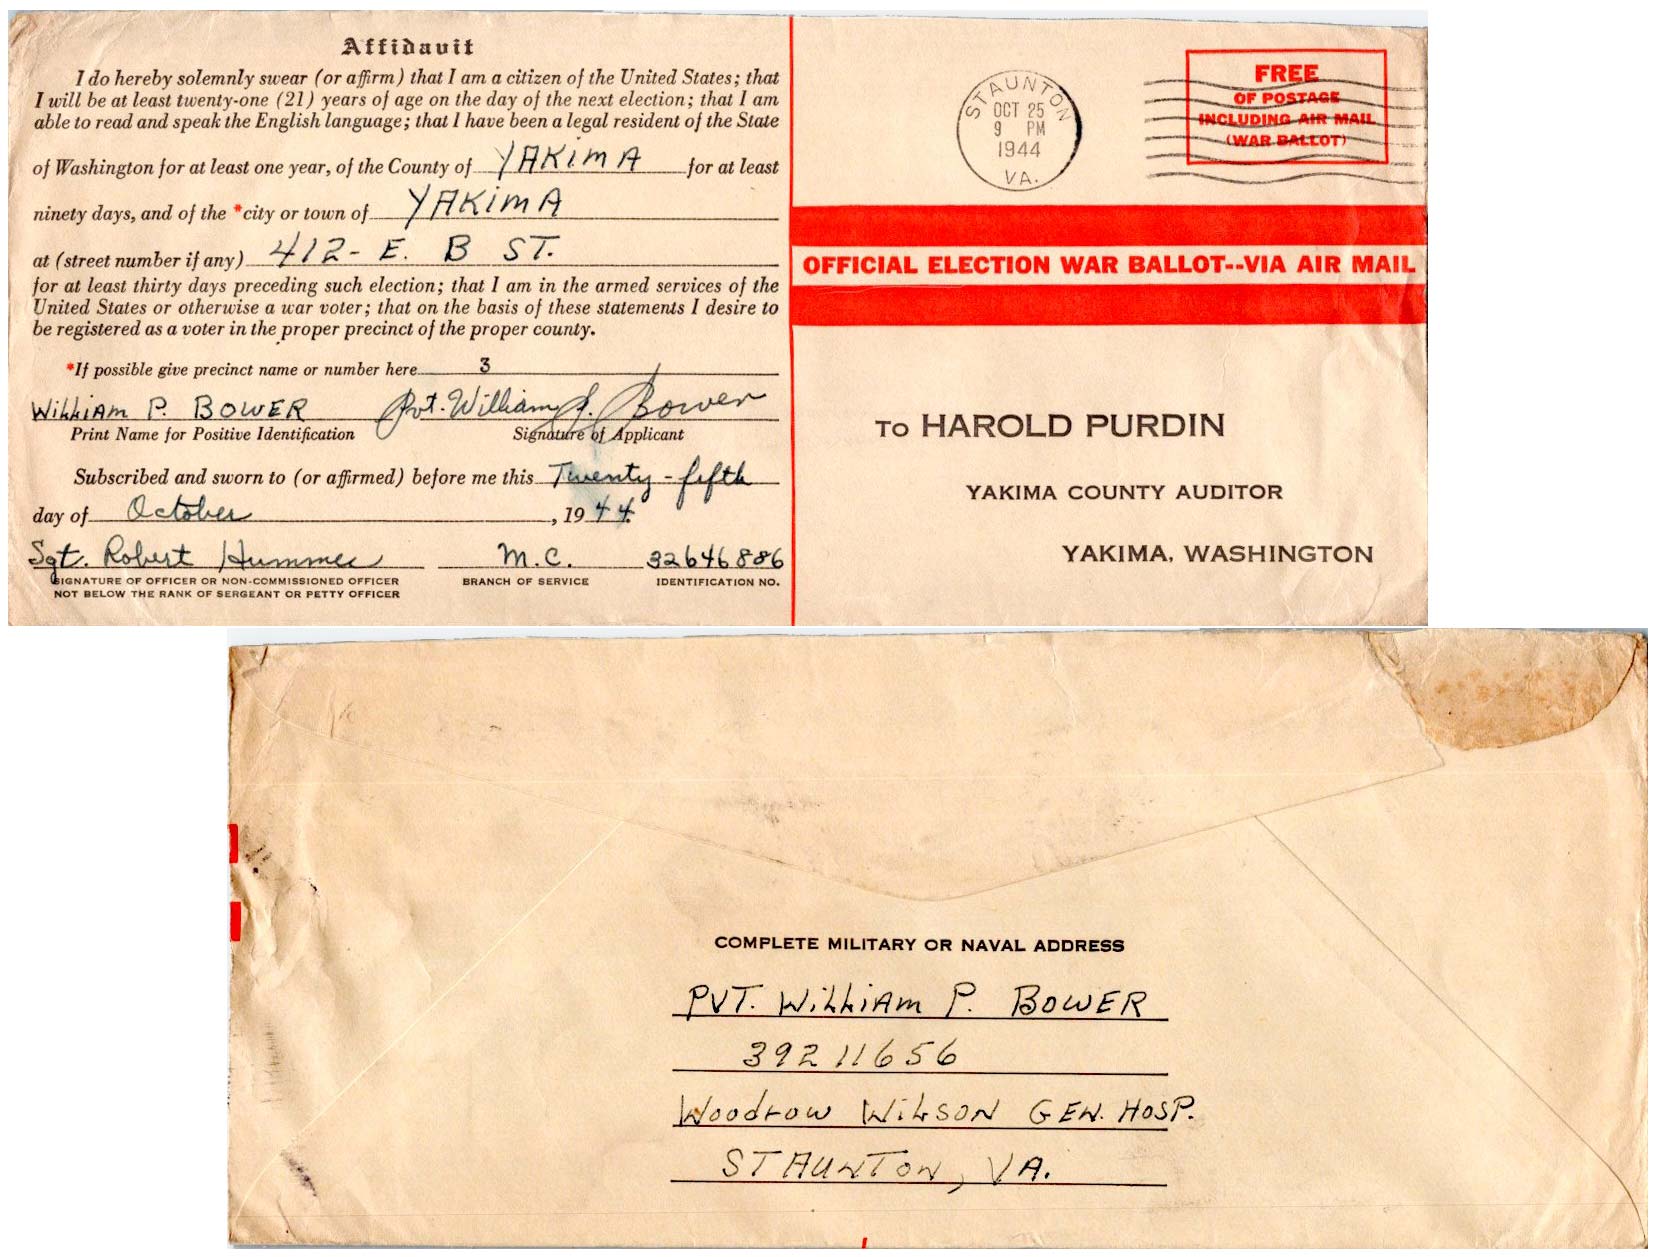 Affidavit
I do hereby solemnly swear (or affirm) that I am a citizen of the United States; that
I will be at least twenty-one (21) years of age on the day of the next election; that I am
able to read and speak the English language; that I have been a legal resident of the State
of Washington for at least one year, of the County of YAKIMA for at least
ninety days, and of the *city or town of YAKIMA
at (street number if any) 412- E. B ST.
for at least thirty days preceding such election; that I am in the armed services of the
United States or otherwise a war voter; that on the basis of these statements I desire to
be registered as a voter in the proper precinct of the proper county.
*If possible give precinct name or number here 3
WilliAm P. BOWER Pvt. William P. Bower
Print Name for Positive Identification Signature of Applicant
Subscribed and sworn to (or affirmed) before me this Twenty-fifth
day of October, 1944.
Sgt. Robert M.C. 32646886
SIGNATURE OF OFFICER OR NON-COMMISSIONED OFFICER BRANCH OF SERVICE IDENTIFICATION NO.
NOT BELOW THE RANK OF SERGEANT OR PETTY OFFICER
STAUNTON
OCT 25
9 PM
1944
VA.
FREE
OF POSTAGE
INCLUDING AIR MAIL
(WAR BALLOT)
OFFICIAL ELECTION WAR BALLOT--VIA AIR MAIL
TO HAROLD PURDIN
YAKIMA COUNTY AUDITOR
YAKIMA, WASHINGTON
COMPLETE MILITARY OR NAVAL ADDRESS
PVT. WilliAm P. BOWER
39211656
Woodrow WilSON GEN. HOSP.
STAUNTON, VA.